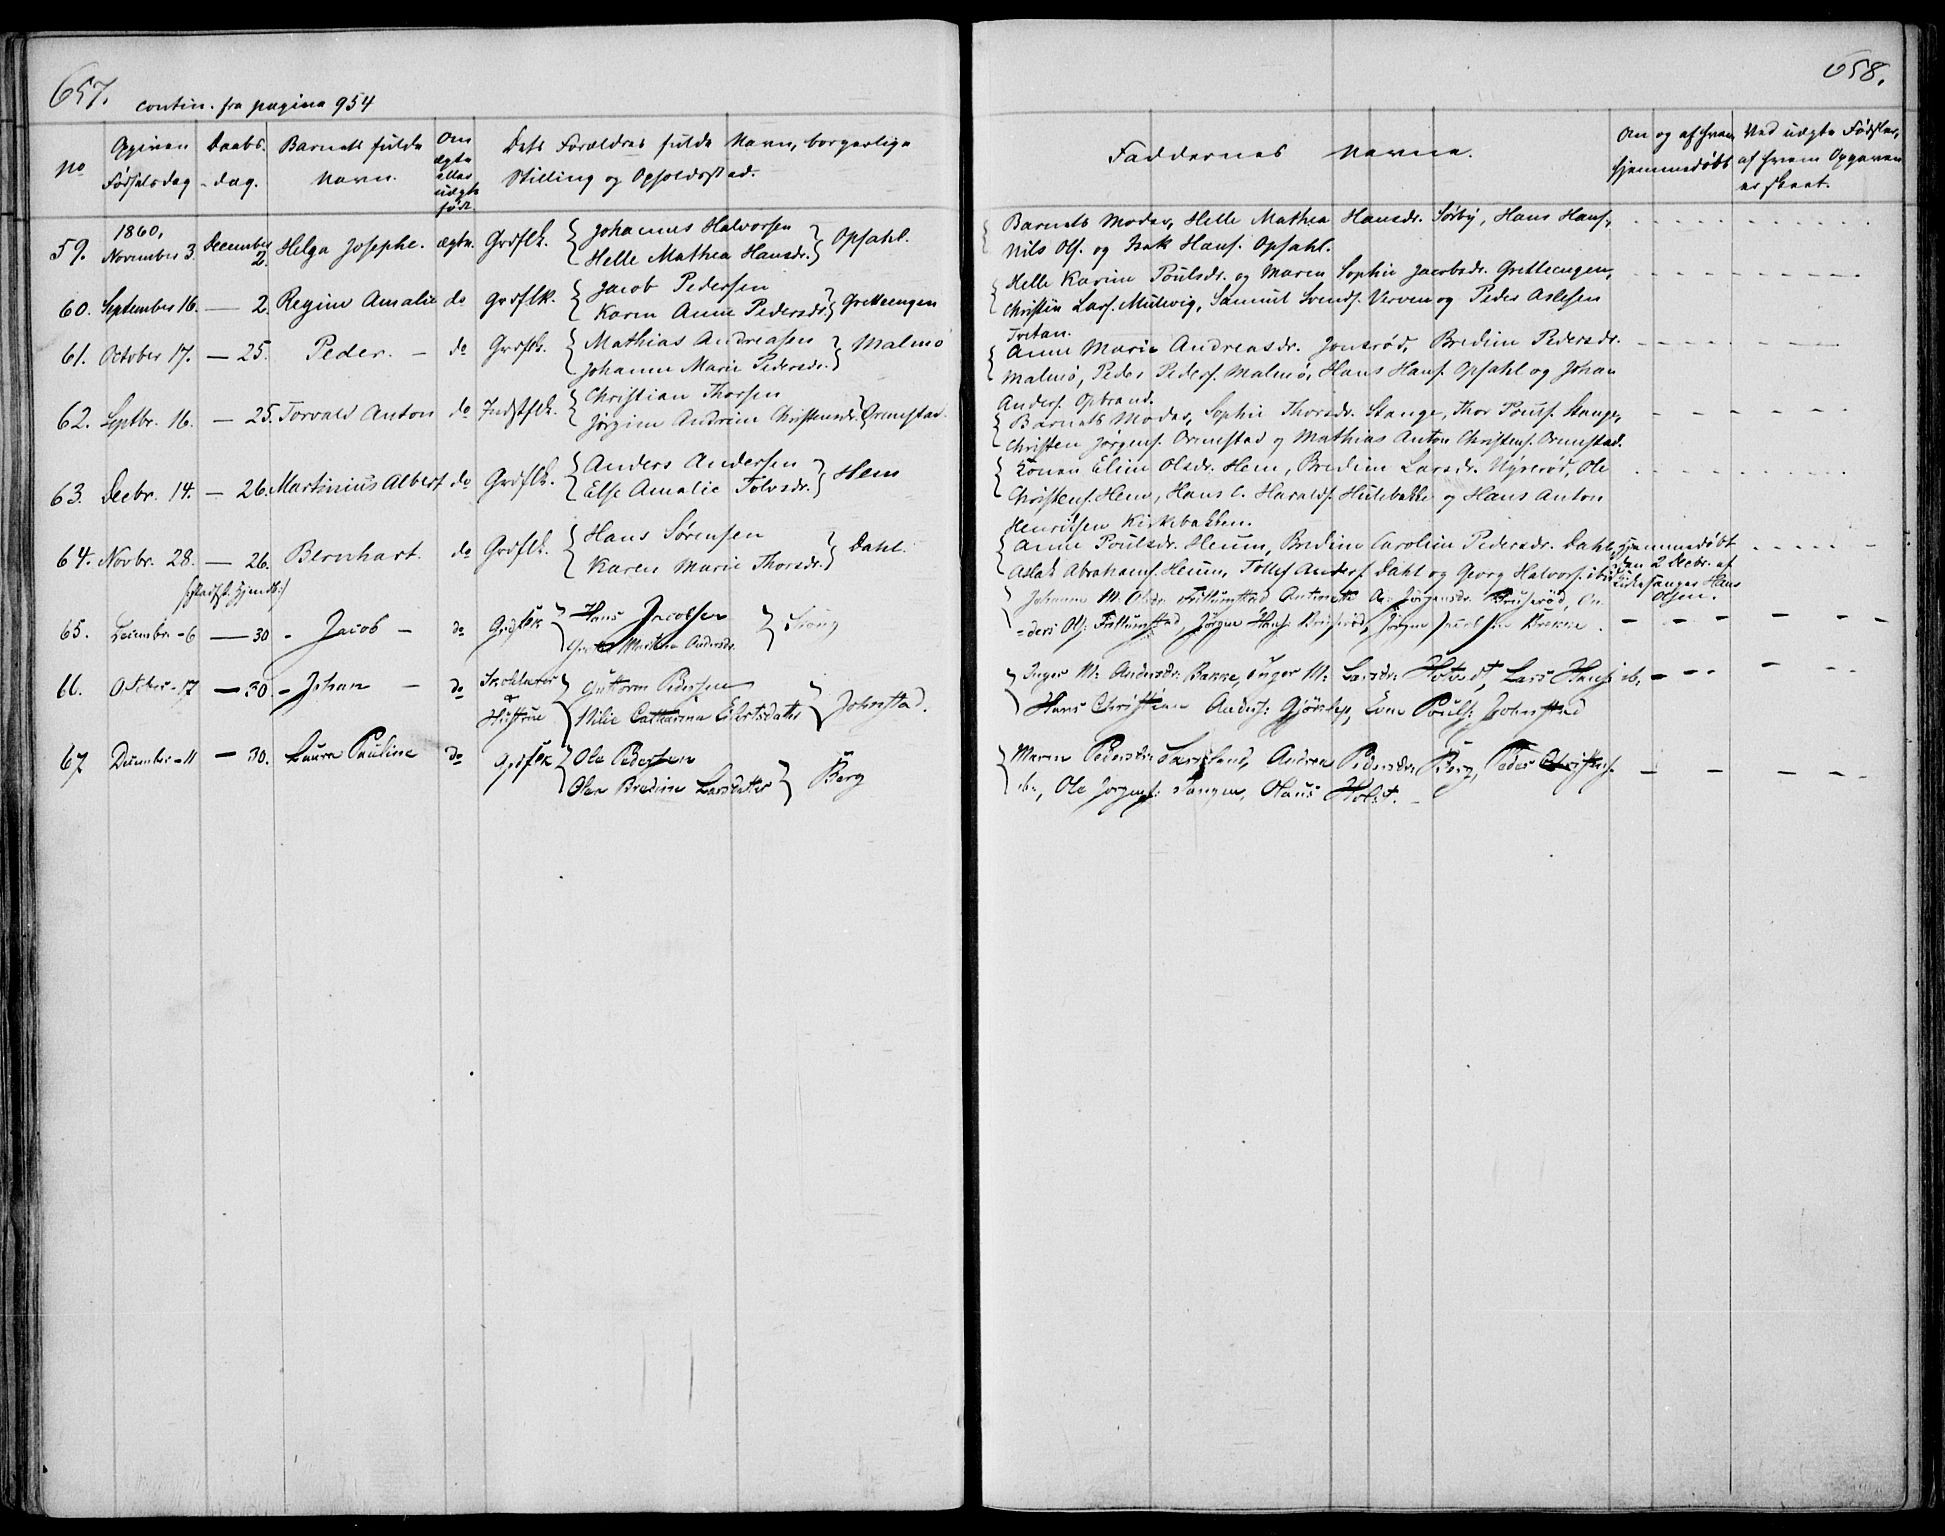 657.
contin. fra pagina 954
No
Opgiven Fødselsdag
Daabs-dag.
Barnets fulde Navn.
Om ægte eller uægte født.
Dets Forældres fulde Navn, borgerlige Stilling og Opholdssted.
59. 1860, November 3. December 2. Helga Josephe. ægte. Grdflk. { Johannes Halvorsen
Helle Mathea Hansdr. } Opsahl.
60. September 16. — 2. Regine Amalie do Grdflk. { Jacob Pedersen
Karen Anne Pedersdr. } Gretteengen
61. October 17. — 25. Peder. — do Grdflk. { Mathias Andreasen
Johanne Marie Pedersdr. } Malmø
62. Septbr. 16. — 25. Torvald Anton do Indstflk. { Christian Thorsen
Jørgine Andrine Christensdr. } Ormestad.
63. Decbr. 14. — 26. Martinius Albert do Grdflk. { Anders Andersen
Else Amalie Tolvsdr. } Hem
64. Novbr. 28. — 26. Bernhart. do Grdflk. { Hans Sørensen
Karen Marie Thorsdr. } Dahl.
65. December 6 — 30 - Jacob - do Grdflk { Hans Jacobsen
Andersdr. }
66. October 17 — 30. - Johan - do Skolelærer & Hustrue { Guttorm Pedersen
Milie Catharina Eilertsdatter } Johnstad.
67 December 11 — 30. Laura Pauline do Grdflk { Ole Pedersen
Olea Bredine Larsdatter } Berg
658.
Faddernes Navne.
Om og af hvem hjemmedøbt
Ved uægte Fødsler, af hvem Opgaven er skeet.
{ Barnets Moder, Helle Mathea Hansdr. Sørby, Hans Hans.,
Nils Ols. og Isak Hans. Opsahl.
{ Helle Karine Poulsdr. og Maren Sophie Jacobsdr. Gretteengen,
Christen Lars. Mulevig, Samuel Svends. Verven og Peder Aslesen
Tvetan.
{ Anne Marie Andreasdr. Jonsrød, Bredine Pedersdr.
Malmø, Peder Peders. Malmø, Hans Hans. Opsahl og Johan
Anders. Opsand.
{ Barnets Moder, Sophie Thorsdr. Stange, Thor Pouls. Stange,
Christen Jørgens. Ormestad og Mathias Anton Christens. Ormestad.
{ Eline Olsdr. Hem, Bredine Larsdr. Nyrerød, Ole
Christens. Hem, Hans C. Haralds. Hulebakke og Hans Anton
Henriksen Kirkebakken.
{ Anne Poulsdr. Heum, Bredine Caroline Pedersdr. Dahl, hjemmedøbt
Aslak Abrahams. Heum, Tollef Anders. Dahl og Georg Halvors. ibid. den 2 Decbr. af
Kirkesanger Hans Olsen.
{ Johanne M. Olsdr. Antonette A. Jørgensdr. Pruserød, An-
ders Ols: Jørgen Hans: Pruserød, Jørgen Jacobsen
{ Inger M: Andersdr: Bakke, Inger M: Larsdr: Holtvedt, Lars Hans: ib.
Hans Christian Anders: Gjørstep, Even Pouls: Johnstad
{ Maren Pedersdr: Andrea Pedersdr: Berg, Peder Christens.
ib., Ole Jørgens: Tangen, Olaus Holst.